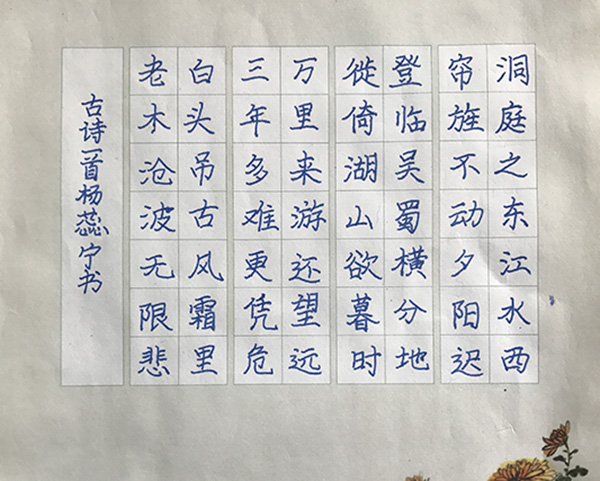 洞庭之东江水西
帘旌不动夕阳迟
登临吴蜀横分地
徙倚湖山欲暮时
万里来游还望远
三年多难更凭危
白头吊古风霜里
老木沧波无限悲
古诗一首杨蕊宁书